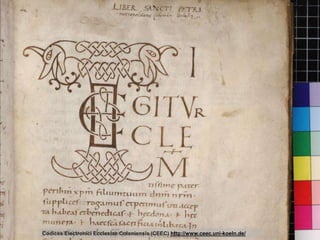 LIBER SANCTI PETRI
TE I
GITVR
CLE
M
tissime pater
perihm xpm filiumtuum dnm nrm
supplices rogamus &petimus uti accep
ta habeas &benedicas & hęcdona & hęc
munera & haecscā sacrificia inlibata In
Codices Electronici Ecclesiae Coloniensis (CEEC) http://www.ceec.uni-koeln.de/